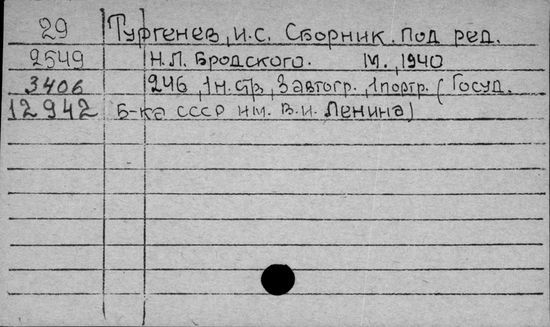 29 Тургенев, И.С. Сборник. Под ред.
2549 Н.Л. Бродского. М., 1940
3406 246, 1 н. стр, 3 автогр., 1 портр. (Госуд.
12942 Б-ка СССР им. В.И. Ленина)